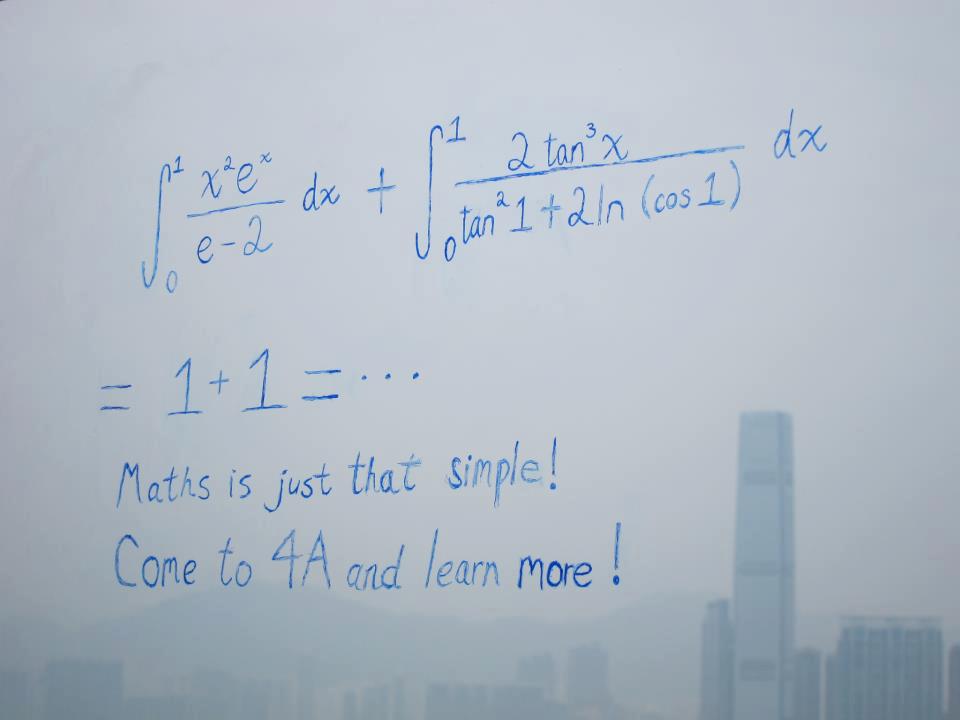 ∫₀¹ x²eˣ/(e-2) dx + ∫₀¹ 2 tan³x/(tan²1+2ln (cos1)) dx
= 1+1 = ...
Maths is just that simple!
Come to 4A and learn more!